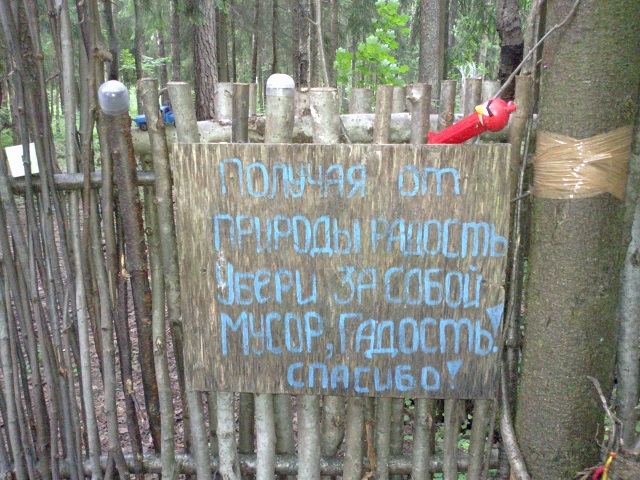 ПОЛУЧАЯ ОТ
ПРИРОДЫ РАДОСТЬ
УБЕРИ ЗА СОБОЙ
МУСОР, ГАДОСТЬ!
СПАСИБО!